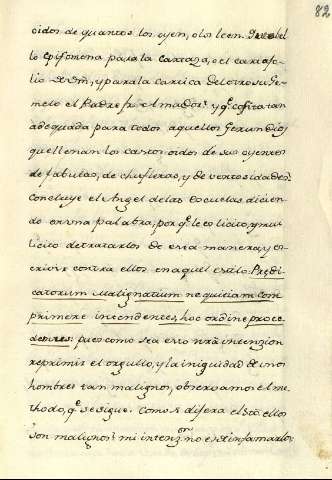 82
oidos de quantos los oyen, o los leen. Que bel
lo epifonema para la carcaxa, o el carcaso-
lio de Dn, y para la carica del otro su Ge-
melo el Padre fr. Amador! y q.e cofita tan
adequada para todos aquellos Gerundios
que llenan los castos oidos de sus oyentes
de fabulas, de chufletas, y de ventosidades!
Concluye el Angel de las Escuelas dicien
do en una palabra; por q.e le es licito, y mui
licito de tratarlos de esta manera, y es-
crivir contra ellos en aquel estilo: Predi
catorum malignatium nequitiam com
primere intendentes, hoc ordine proce
demus: pues como sea esto nrã intenzion
reprimir el orgullo, y la iniquidad de unos
hombres tan malignos, observamos el me
thodo, q.e se sigue. Como si dijera el Sto: ellos
son malignos: mi intenz.on no es difamarlos;